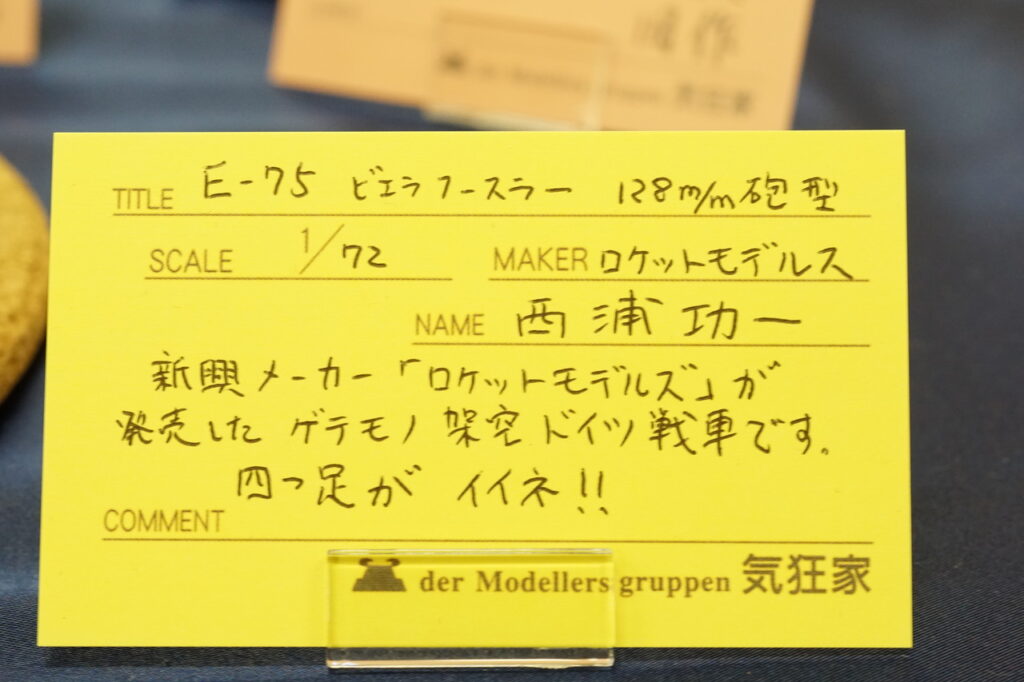 作
der Modellers gruppen 気狂家
TITLE E-75 ビエラフースラー 128m/m砲型
SCALE 1/72 MAKER ロケットモデルス
NAME 西浦功一
新興メーカー「ロケットモデルズ」が
発売した ゲテモノ 架空ドイツ戦車です。
四つ足が イイネ!!
COMMENT
der Modellers gruppen 気狂家